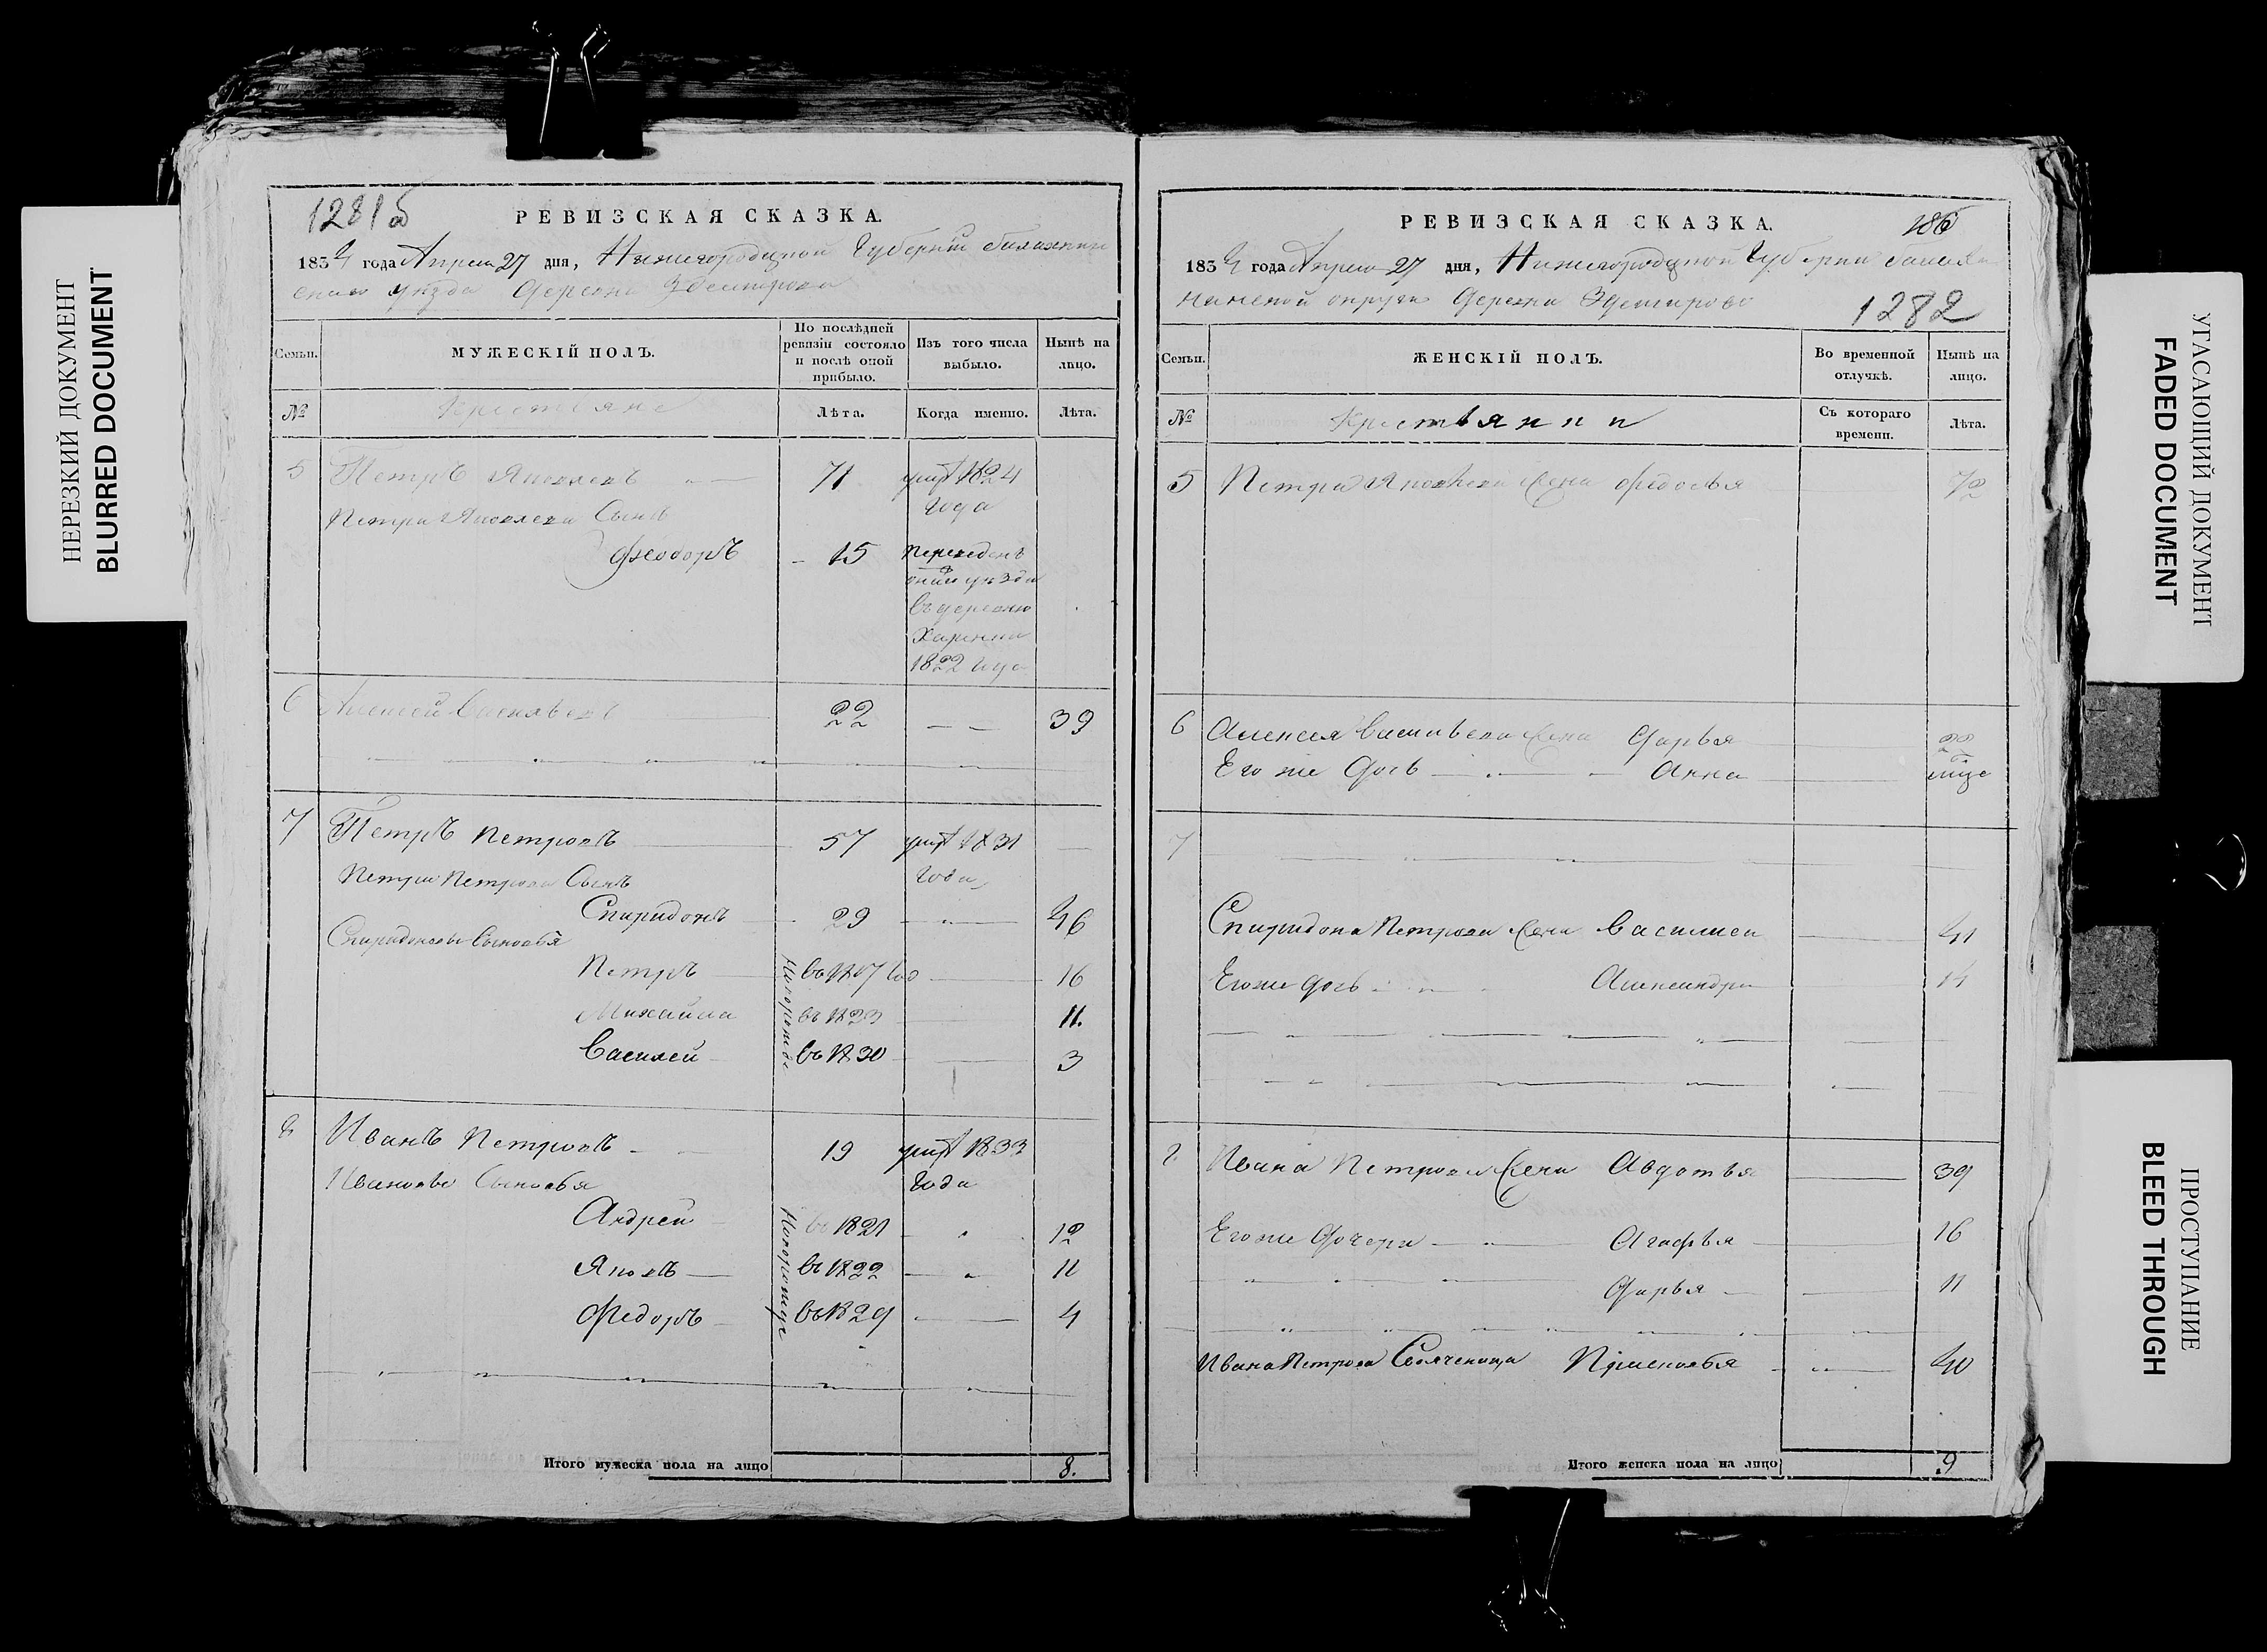 НЕРЕЗКИЙ ДОКУМЕНТ
BLURRED DOCUMENT
1281б
РЕВИЗСКАЯ СКАЗКА.
1834 года Апреля 27 дня, Нижегородской Губернии
уезда деревни
Семьи.
МУЖЕСКІЙ ПОЛЪ.
По послѣдней ревизіи состояло и послѣ оной прибыло.
Изъ того числа выбыло.
Нынѣ на лицо.
№
Крестьяне
Лѣта.
Когда именно.
Лѣта.
5 Петръ Яковлевъ 71 умръ 1824
Петра Яковлева Сынъ года
Феодоръ 15 переведенъ
уезда
въ деревню
1822 года
6 Алексей Васильевъ 22 39
7 Петръ Петровъ 57 умръ 1831
Петра Петрова Сынъ года
Спиридонъ 29 46
Спиридоновы Сыновья
Новорожде
Петръ въ 1817 год 16
Михайла въ 1823 11.
Василей въ 1830 3
8 Иванъ Петровъ 19 умръ 1833
Ивановы Сыновья года
Андрей въ 1821 12
Яковъ въ 1822 11
Федоръ въ 1829 4
Итого мужеска пола на лицо 8.
РЕВИЗСКАЯ СКАЗКА.
186
1834 года Апреля 27 дня, Нижегородской Губернии
округи деревни
1282
Семьи.
ЖЕНСКІЙ ПОЛЪ.
Во временной отлучкѣ.
Нынѣ на лицо.
№
Съ котораго времени.
Лѣта.
5 Петра Яковлева жена Федосья 72
6 Алексея Васильева жена Дарья 22
Его же дочь Анна
7
Спиридона Петрова жена Василиса 41
Его же дочь Александра 14
8 Ивана Петрова жена Авдотья 39
Его же дочери Агафья 16
Дарья 11
Ивана Петрова 40
Итого женска пола на лицо 9
УГАСАЮЩИЙ ДОКУМЕНТ
FADED DOCUMENT
ПРОСТУПАНИЕ
BLEED THROUGH